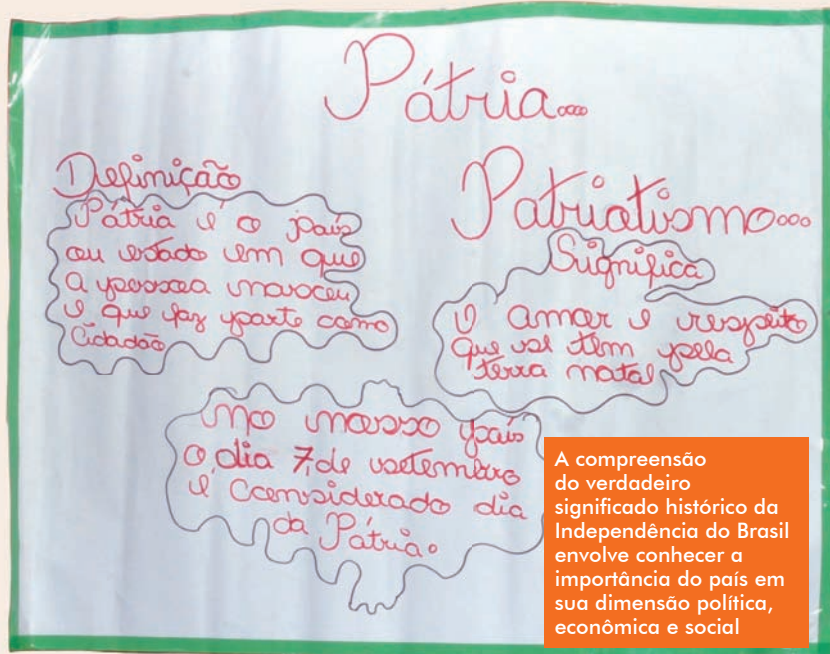 Pátria...
Definição
Pátria é o país
ou estado em que
a pessoa nasceu
e que faz parte como
Cidadão
Patriotismo...
Significa
O amor e respeito
que se tem pela
terra natal
No nosso país
o dia 7 de setembro
é Considerado dia
da Pátria.
A compreensão
do verdadeiro
significado histórico da
Independência do Brasil
envolve conhecer a
importância do país em
sua dimensão política,
econômica e social